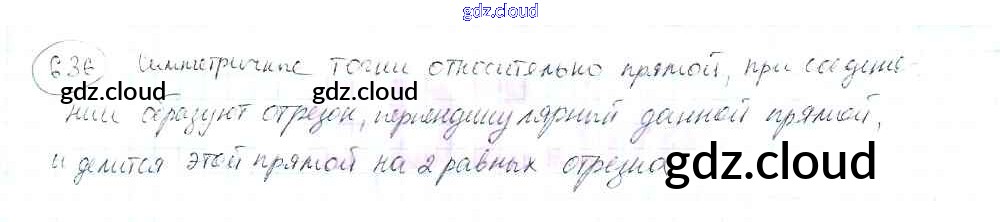 gdz.cloud
636 Симметричные точки относительно прямой, при соедине-
gdz.cloud gdz.cloud
нии образуют отрезок, перпендикулярный данной прямой,
и делится этой прямой на 2 равных отрезка
gdz.cloud